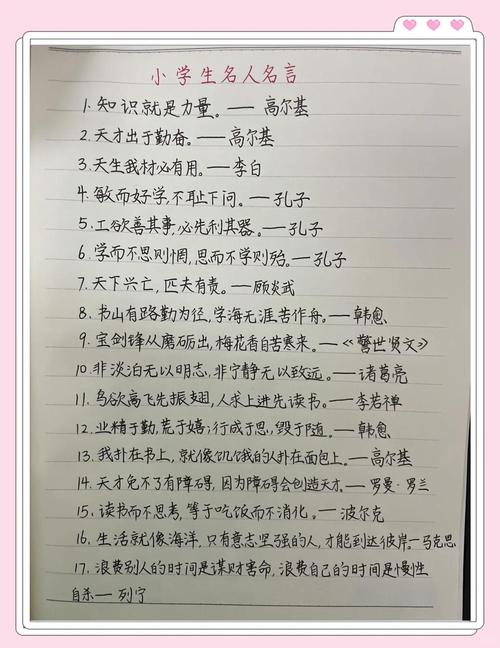 小学生名人名言
1.知识就是力量。——高尔基
2.天才出于勤奋。——高尔基
3.天生我材必有用。——李白
4.敏而好学,不耻下问。——孔子
5.工欲善其事,必先利其器。——孔子
6.学而不思则惘,思而不学则殆。——孔子
7.天下兴亡,匹夫有责。——顾炎武
8.书山有路勤为径,学海无涯苦作舟。——韩愈
9.宝剑锋从磨砺出,梅花香自苦寒来。——《警世贤文》
10.非淡泊无以明志,非宁静无以致远。——诸葛亮
11.鸟欲高飞先振翅,人求上进先读书。——李若禅
12.业精于勤,荒于嬉;行成于思,毁于随。——韩愈
13.我扑在书上,就像饥饿的人扑在面包上。——高尔基
14.天才免不了有障碍,因为障碍会创造天才。——罗曼·罗兰
15.读书而不思考,等于吃饭而不消化。——波尔克
16.生活就像海洋,只有意志坚强的人,才能到达彼岸。—马克思
17.浪费别人的时间是谋财害命,浪费自己的时间是慢性
自杀——列宁